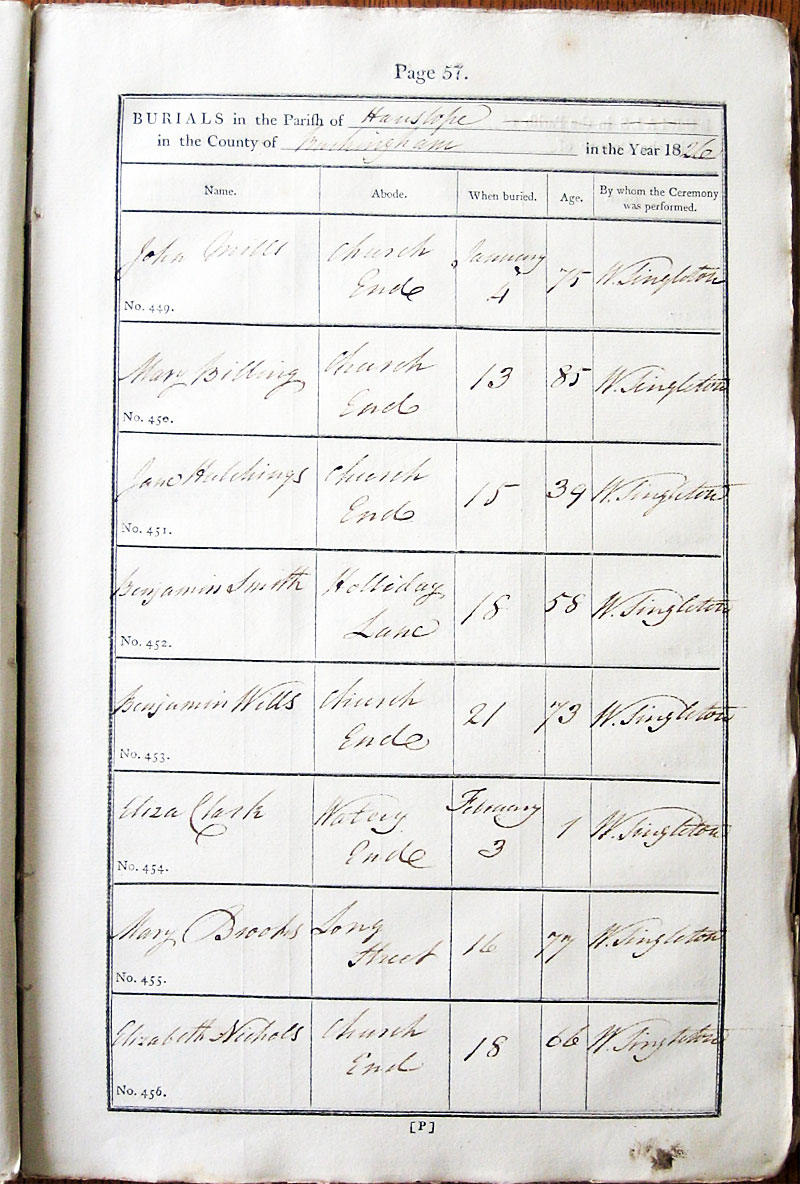 Page 57.
BURIALS in the Parish of Hanslope
in the County of Buckingham in the Year 1826
Name. Abode. When buried. Age. By whom the Ceremony was performed.
John Mills Church End January 4 75 W. Singleton
No. 449.
Mary Billing Church End 13 85 W. Singleton
No. 450.
Jane Hutchings Church End 15 39 W. Singleton
No. 451.
Benjamin Smith Holliday Lane 18 58 W. Singleton
No. 452.
Benjamin Wills Church End 21 73 W. Singleton
No. 453.
Eliza Clark Watery End February 3 1 W. Singleton
No. 454.
Mary Brooks Long Street 16 77 W. Singleton
No. 455.
Elizabeth Nichols Church End 18 66 W. Singleton
No. 456.
[P]